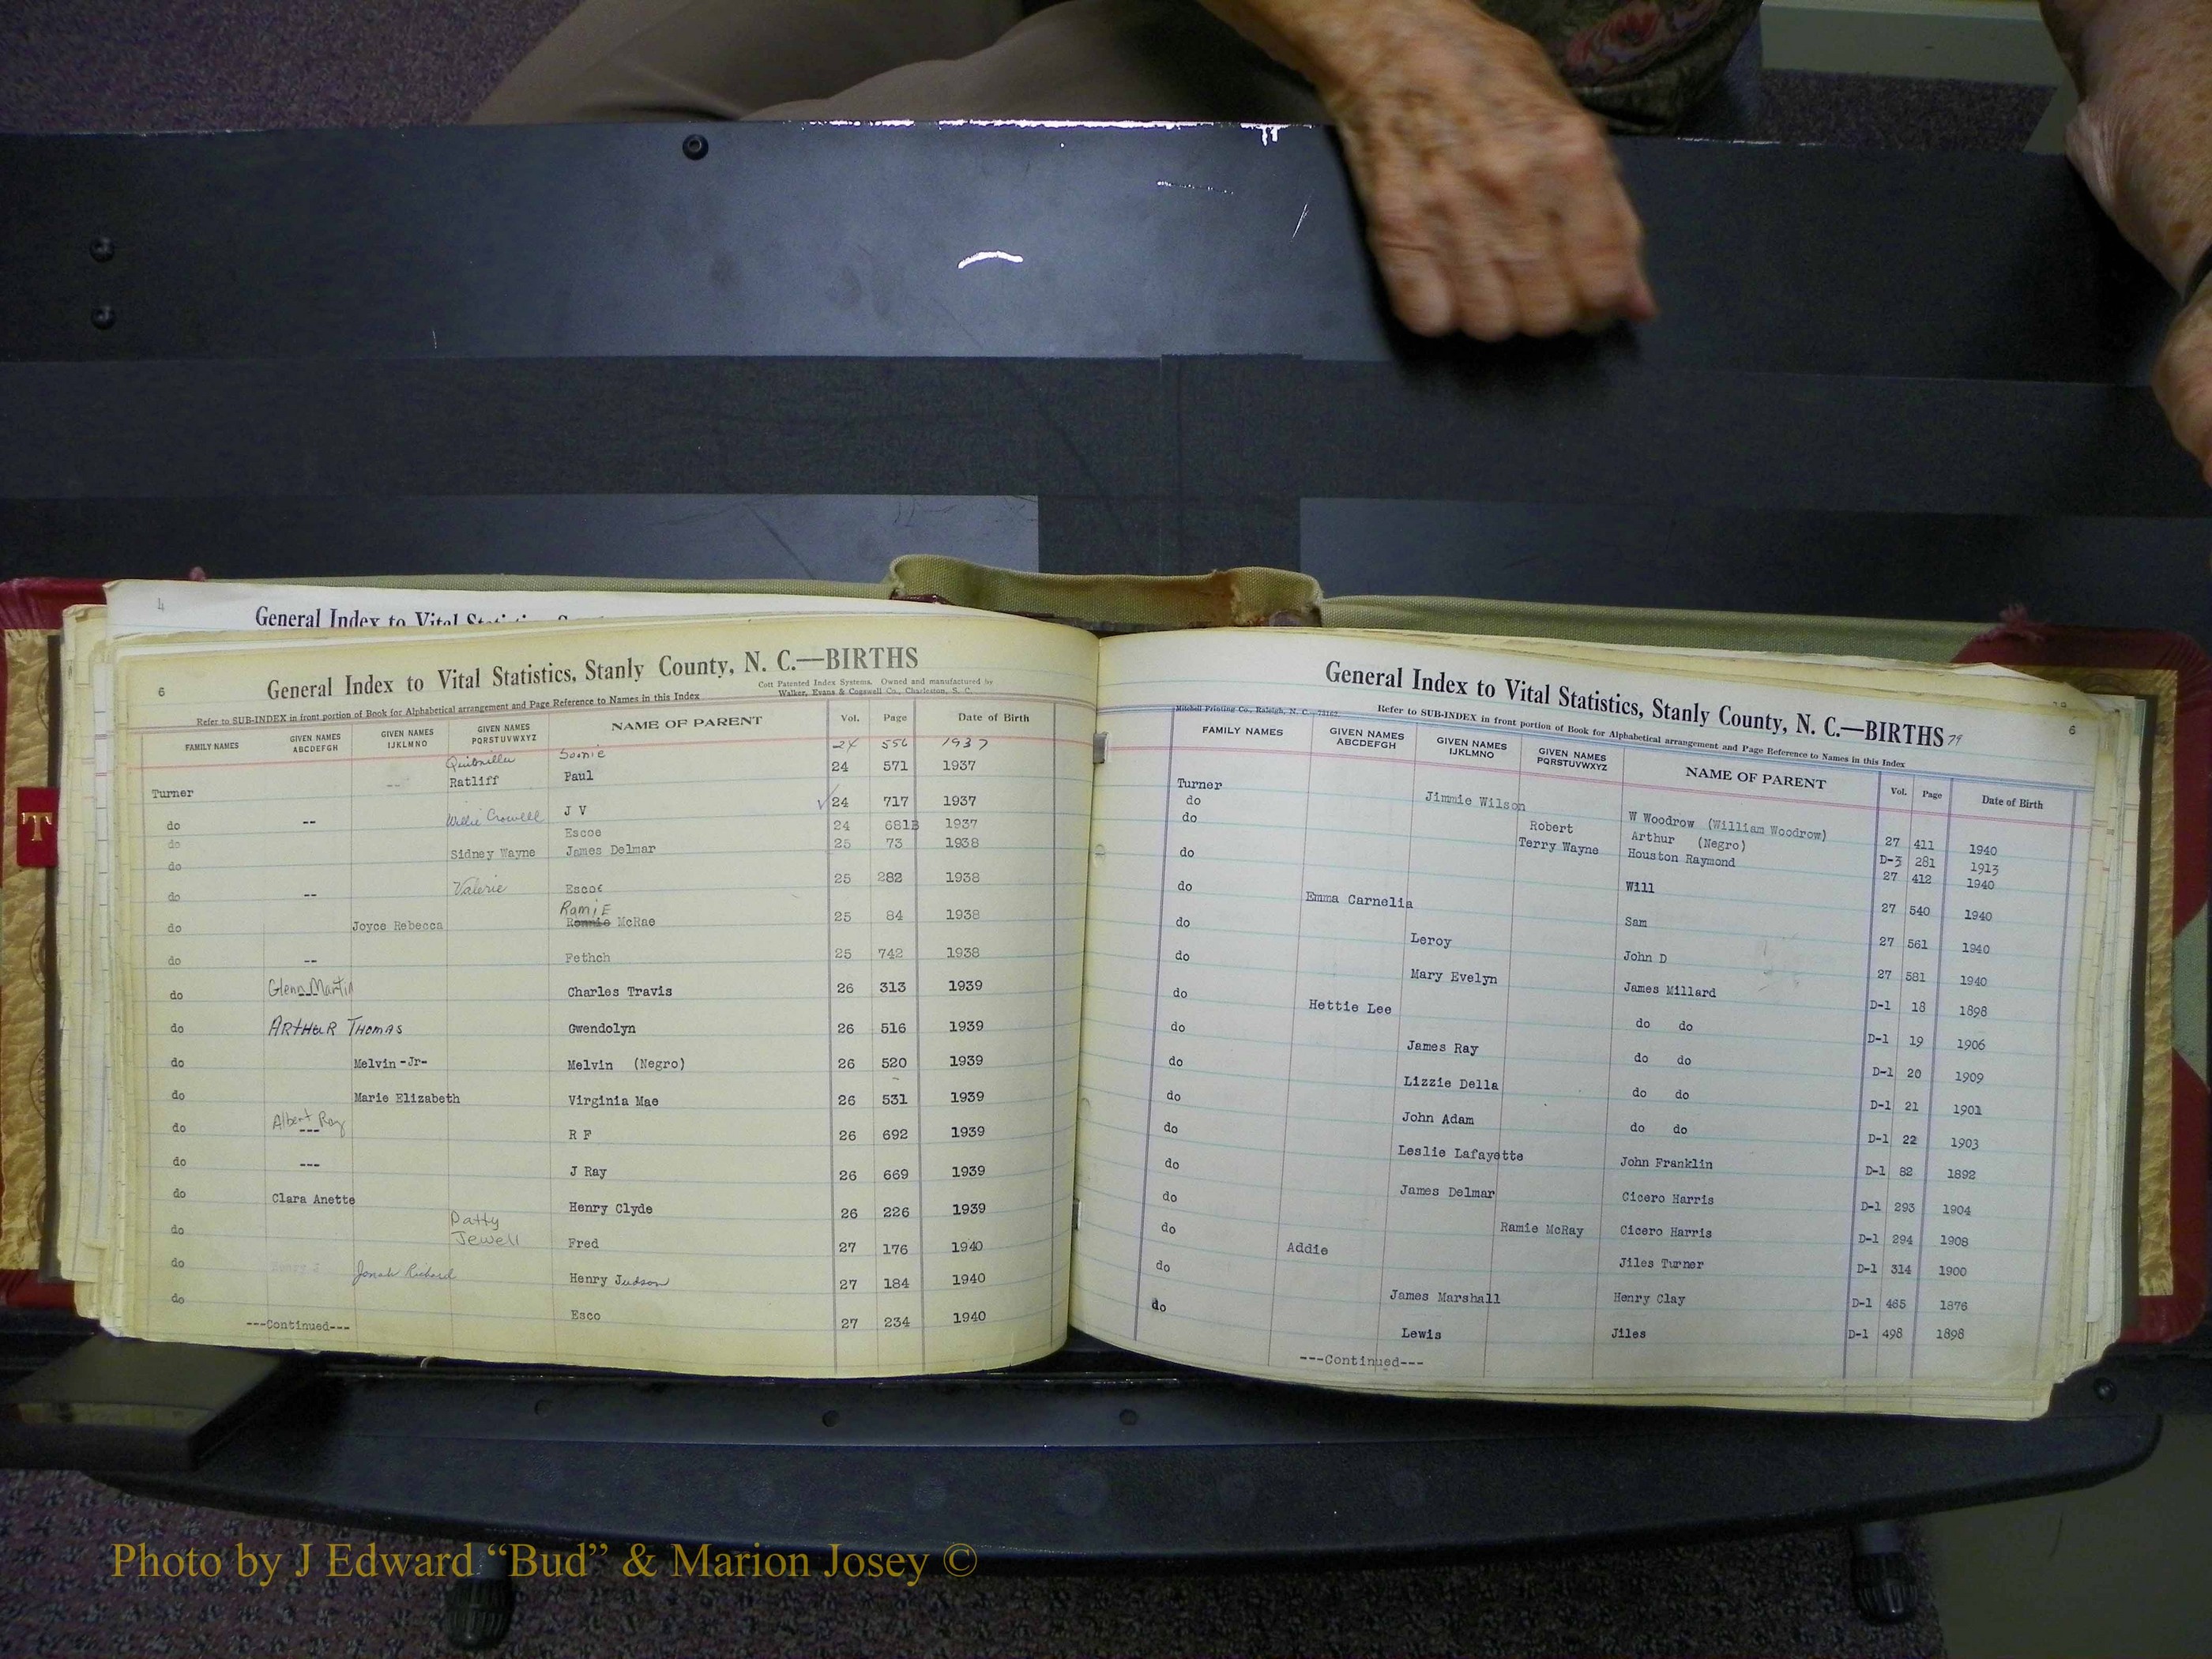 4
General Index to Vital Statistics
6
General Index to Vital Statistics, Stanly County, N. C.—BIRTHS
Cott Patented Index Systems. Owned and manufactured by
Walker, Evans & Cogswell Co., Charleston, S. C.
Refer to SUB-INDEX in front portion of Book for Alphabetical arrangement and Page Reference to Names in this Index
FAMILY NAMES GIVEN NAMES ABCDEFGH GIVEN NAMES IJKLMNO GIVEN NAMES PQRSTUVWXYZ NAME OF PARENT Vol. Page Date of Birth
24 556 1937
Turner -- Ratliff Paul 24 571 1937
do -- Willie Crowell J V 24 717 1937
do Escoe 24 681B 1937
do Sidney Wayne James Delmar 25 73 1938
do -- Valerie Escoe 25 282 1938
RamiE
do Joyce Rebecca Ronnie McRae 25 84 1938
do -- Fethch 25 742 1938
do Glenn Martin Charles Travis 26 313 1939
do ARTHUR THOMAS Gwendolyn 26 516 1939
do Melvin -Jr- Melvin (Negro) 26 520 1939
do Marie Elizabeth Virginia Mae 26 531 1939
do Albert Ray --- R F 26 692 1939
do --- J Ray 26 669 1939
do Clara Anette Henry Clyde 26 226 1939
do Patty Jewell Fred 27 176 1940
do Henry J Jonah Richard Henry Judson 27 184 1940
do Esco 27 234 1940
---Continued---
T
General Index to Vital Statistics, Stanly County, N. C.—BIRTHS 79
6
Mitchell Printing Co., Raleigh, N. C.
Refer to SUB-INDEX in front portion of Book for Alphabetical arrangement and Page Reference to Names in this Index
FAMILY NAMES GIVEN NAMES ABCDEFGH GIVEN NAMES IJKLMNO GIVEN NAMES PQRSTUVWXYZ NAME OF PARENT Vol. Page Date of Birth
Turner Jimmie Wilson W Woodrow (William Woodrow) 27 411 1940
do Robert Arthur (Negro) D-3 281 1913
do Terry Wayne Houston Raymond 27 412 1940
do Will 27 540 1940
do Emma Carnelia Sam 27 561 1940
do Leroy John D 27 581 1940
do Mary Evelyn James Millard D-1 18 1898
do Hettie Lee do do D-1 19 1906
do James Ray do do D-1 20 1909
do Lizzie Della do do D-1 21 1901
do John Adam do do D-1 22 1903
do Leslie Lafayette John Franklin D-1 82 1892
do James Delmar Cicero Harris D-1 293 1904
do Ramie McRay Cicero Harris D-1 294 1908
do Addie Jiles Turner D-1 314 1900
do James Marshall Henry Clay D-1 465 1876
do Lewis Jiles D-1 498 1898
---Continued---
Photo by J Edward “Bud” & Marion Josey ©